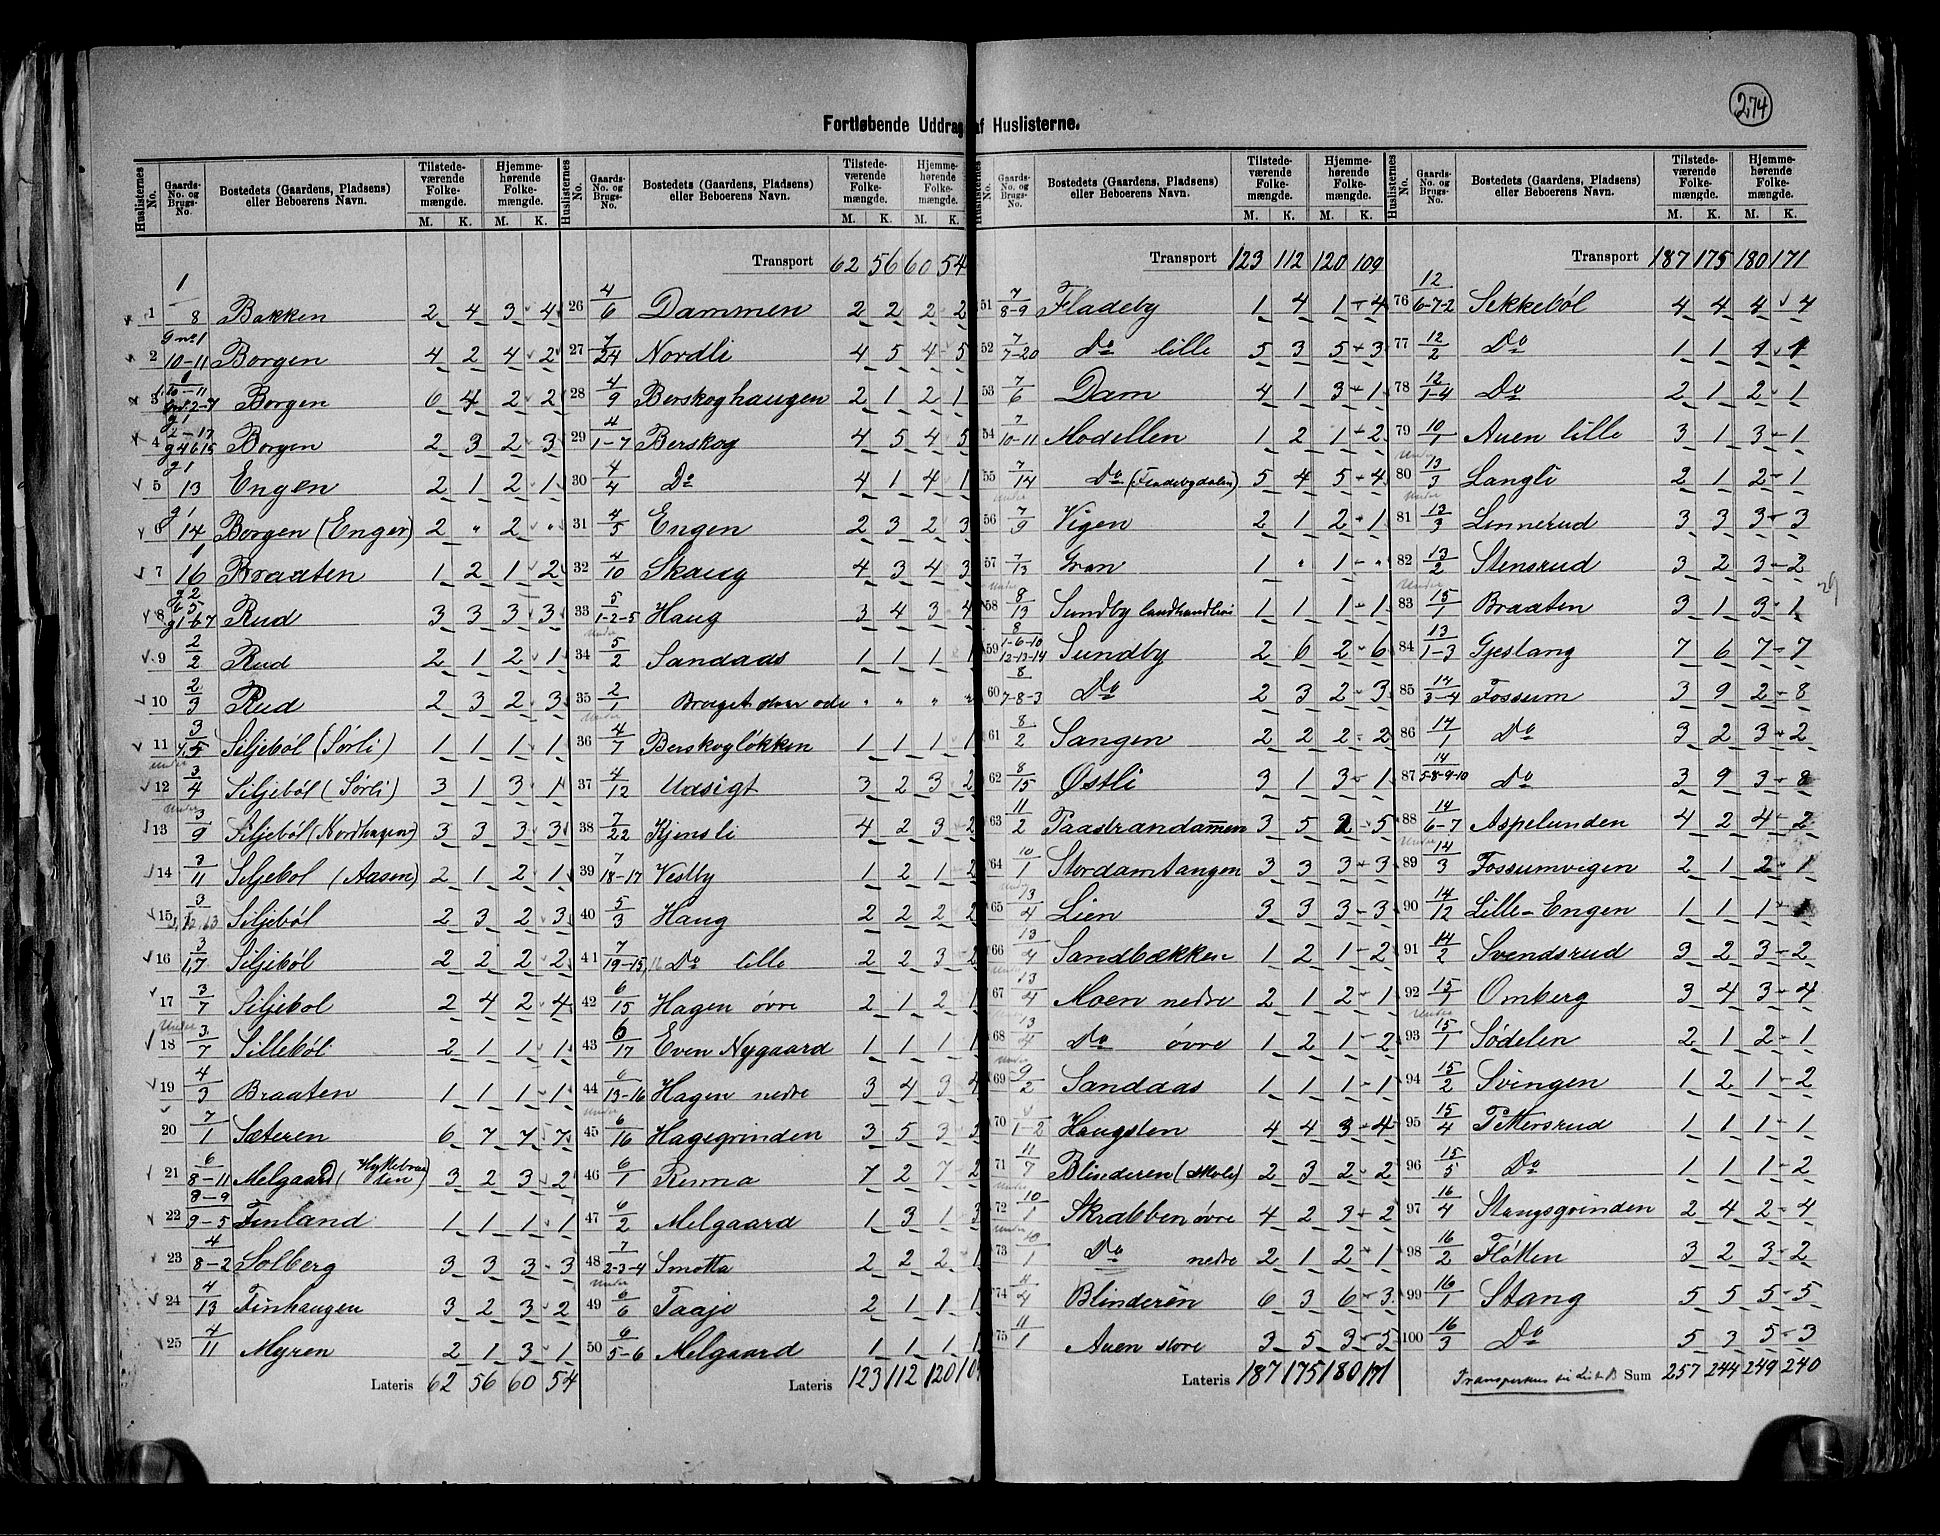 274
Fortløbende Uddrag af Huslisterne.
Huslisternes No. Gaards-No. og Brugs-No. Bostedets (Gaardens, Pladsens) eller Beboerens Navn. Tilstedeværende Folkemængde. M. K. Hjemmehørende Folkemængde. M. K.
1 1/8 Bakken 2 4 3 4
2 g no 1 10-11 Borgen 4 2 4 2
3 Borgen 6 4 2 2
4 Borgen 2 3 2 3
5 g1 13 Engen 2 1 2 1
6 g1 14 Borgen (Enger) 2 " 2 "
7 1/16 Braaten 1 2 1 2
8 Rud 3 3 3 3
9 2/2 Rud 2 1 2 1
10 2/3 Rud 2 3 2 3
11 3/4,5 Siljebøl (Sørli) 1 1 1 1
Under
12 3/4 Siljebøl (Sørli) 3 1 3 1
Under
13 3/9 Siljebøl (Nordhagen) 3 3 3 3
14 3/11 Siljebol (Aasen) 2 1 2 1
15 Siljebøl 2 3 2 3
16 3/1,7 Siljebøl 2 2 2 2
17 3/7 Siljebol 2 4 2 4
Under
18 3/7 Sillebøl 2 1 1 1
19 4/3 Braaten 1 1 1 1
20 7/1 Sæteren 6 7 7 7
21 6/8-11 Melgaard (Hyttebraaten) 3 2 3 2
22 8-9/9-5 Finland 1 1 1 1
23 4/8-2 Solberg 3 3 3 3
24 4/13 Finhaugen 3 2 3 2
25 4/11 Myren 2 1 3 1
Lateris 62 56 60 54
Huslisternes No. Gaards-No. og Brugs-No. Bostedets (Gaardens, Pladsens) eller Beboerens Navn. Tilstedeværende Folkemængde. M. K. Hjemmehørende Folkemængde. M. K.
Transport 62 56 60 54
26 4/6 Dammen 2 2 2 2
27 7/24 Nordli 4 5 4 5
28 4/9 Berskoghaugen 2 1 2 1
29 4/1-7 Berskog 4 5 4 5
30 4/4 Do 4 1 4 1
31 4/5 Engen 2 3 2 3
32 4/10 Skaug 4 3 4 3
33 5/1-2-5 Haug 3 4 3 4
Under
34 5/2 Sandaas 1 1 1 1
35 2/1 " " " "
Under
36 4/7 Berskogløkken 1 1 1 1
37 4/12 Udsigt 3 2 3 2
38 7/22 Kjensli 4 2 3 2
39 7/18-17 Vestby 1 2 1 2
40 5/3 Haug 2 2 2 2
41 7/19-15 Do lille 2 2 3 2
42 6/15 Hagen øvre 2 1 2 1
43 6/17 Even Nygaard 1 1 1 1
44 6/13-16 Hagen nedre 3 4 3 4
Under
45 6/16 Hagegrinden 3 5 3
46 6/1 Rema 7 2 7 2
47 6/2 Melgaard 1 3 1 3
48 7/2-3-4 Smotta 2 2 2 1
Under
49 6/6 Taajo 2 1 1 1
50 6/5-6 Melgaard 1 1 1 1
Lateris 123 112 120 109
Huslisternes No. Gaards-No. og Brugs-No. Bostedets (Gaardens, Pladsens) eller Beboerens Navn. Tilstedeværende Folkemængde. M. K. Hjemmehørende Folkemængde. M. K.
Transport 123 112 120 109
51 7/8-9 Fladeby 1 4 1 4
52 7/7-20 Do lille 5 3 5 3
53 7/6 Dam 4 1 3 1
54 7/10-11 Modellen 1 2 1 2
55 7/14 Do (Fladebydalen) 5 4 5 4
Under
56 7/9 Vigen 2 1 2 1
57 7/13 Gran 1 " 1 "
Under
58 8/13 Sundby landhandleri 1 1 1 1
59 8/1-6-10 12-13-14 Sundby 2 6 2 6
60 8/7-8-3 Do 2 3 2 3
61 8/2 Sangen 2 2 2 2
62 8/15 Østli 3 1 3 1
63 11/2 Paastrandammen 3 5 2 5
64 10/1 Stordamtangen 3 3 3 3
Under
65 13/4 Lien 3 3 3 3
66 13/4 Sandbækken 1 2 1 2
67 13/4 Moen nedre 2 1 2 1
Under
68 13/4 Do øvre 1 2 1 2
Under
69 9/2 Sanddaas 1 1 1 1
70 1-2 Haugsten 4 4 3 4
71 11/7 Blinderen (skole) 2 3 2 2
72 10/1 Skrabben øvre 4 2 3 2
Under
73 10/1 Do nedre 2 1 2 1
74 11/4 Blinderen 6 3 6 3
75 11/1 Auen store 3 5 3 5
Lateris 187 175 180 171
Huslisternes No. Gaards-No. og Brugs-No. Bostedets (Gaardens, Pladsens) eller Beboerens Navn. Tilstedeværende Folkemængde. M. K. Hjemmehørende Folkemængde. M. K.
Transport 187 175 180 171
76 12/6-7-2 Sekkebøl 4 4 4 4
77 12/2 Do 1 1 1 1
78 12/1-4 Do 2 1 2 1
79 10/1 Auen lille 3 1 3 1
Under
80 13/3 Langli 2 1 2 1
Under
81 13/3 Linnerud 3 3 3 3
82 13/2 Stensrud 3 2 3 2
Under
83 15/1 Braaten 3 1 3 1
84 13/1-3 Gjeslang 7 6 7 7
85 14/3-4 Fossum 3 9 2 8
86 14/1 Do 3 2 3 2
87 14/5-8-9-10 Do 3 9 3 8
88 14/6-7 Aspelunden 4 2 4 2
Under
89 14/3 Fossumvigen 2 1 2 1
90 14/12 Lille-Engen 1 1 1 1
91 14/2 Svendsrud 3 2 3 2
92 15/1 Omberg 3 4 3 4
Under
93 15/1 Sødelen 2 1 2 1
94 15/2 Svingen 1 2 1 2
95 15/4 Pettersrud 1 1 1 1
96 15/5 Do 1 1 1 2
97 16/4 Stangsgrinden 2 4 2 4
98 16/2 Fløtten 3 2 3 2
99 16/1 Stang 5 5 5 5
100 16/3 Do 5 3 5 3
Sum 257 244 249 240